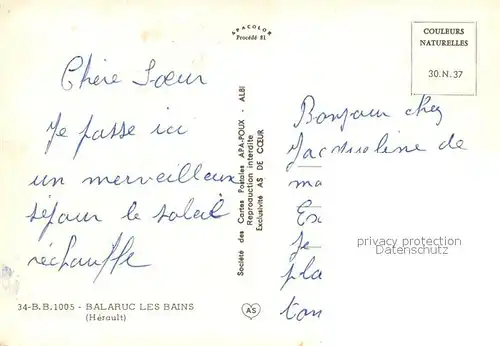 APACOLOR
Procédé 81
COULEURS
NATURELLES
30.N.37
Chère Sœur
Je passe ici
un merveilleux
séjour le soleil
réchauffe
Société des Cartes Postales APA-POUX - ALBI
Reproduction interdite
Exclusivité AS DE CŒUR
Bonjour chez
Jacqueline de
ma
Je
pla
ton
privacy protection
Datenschutz
34-B.B.1005 - BALARUC LES BAINS
(Hérault)
AS